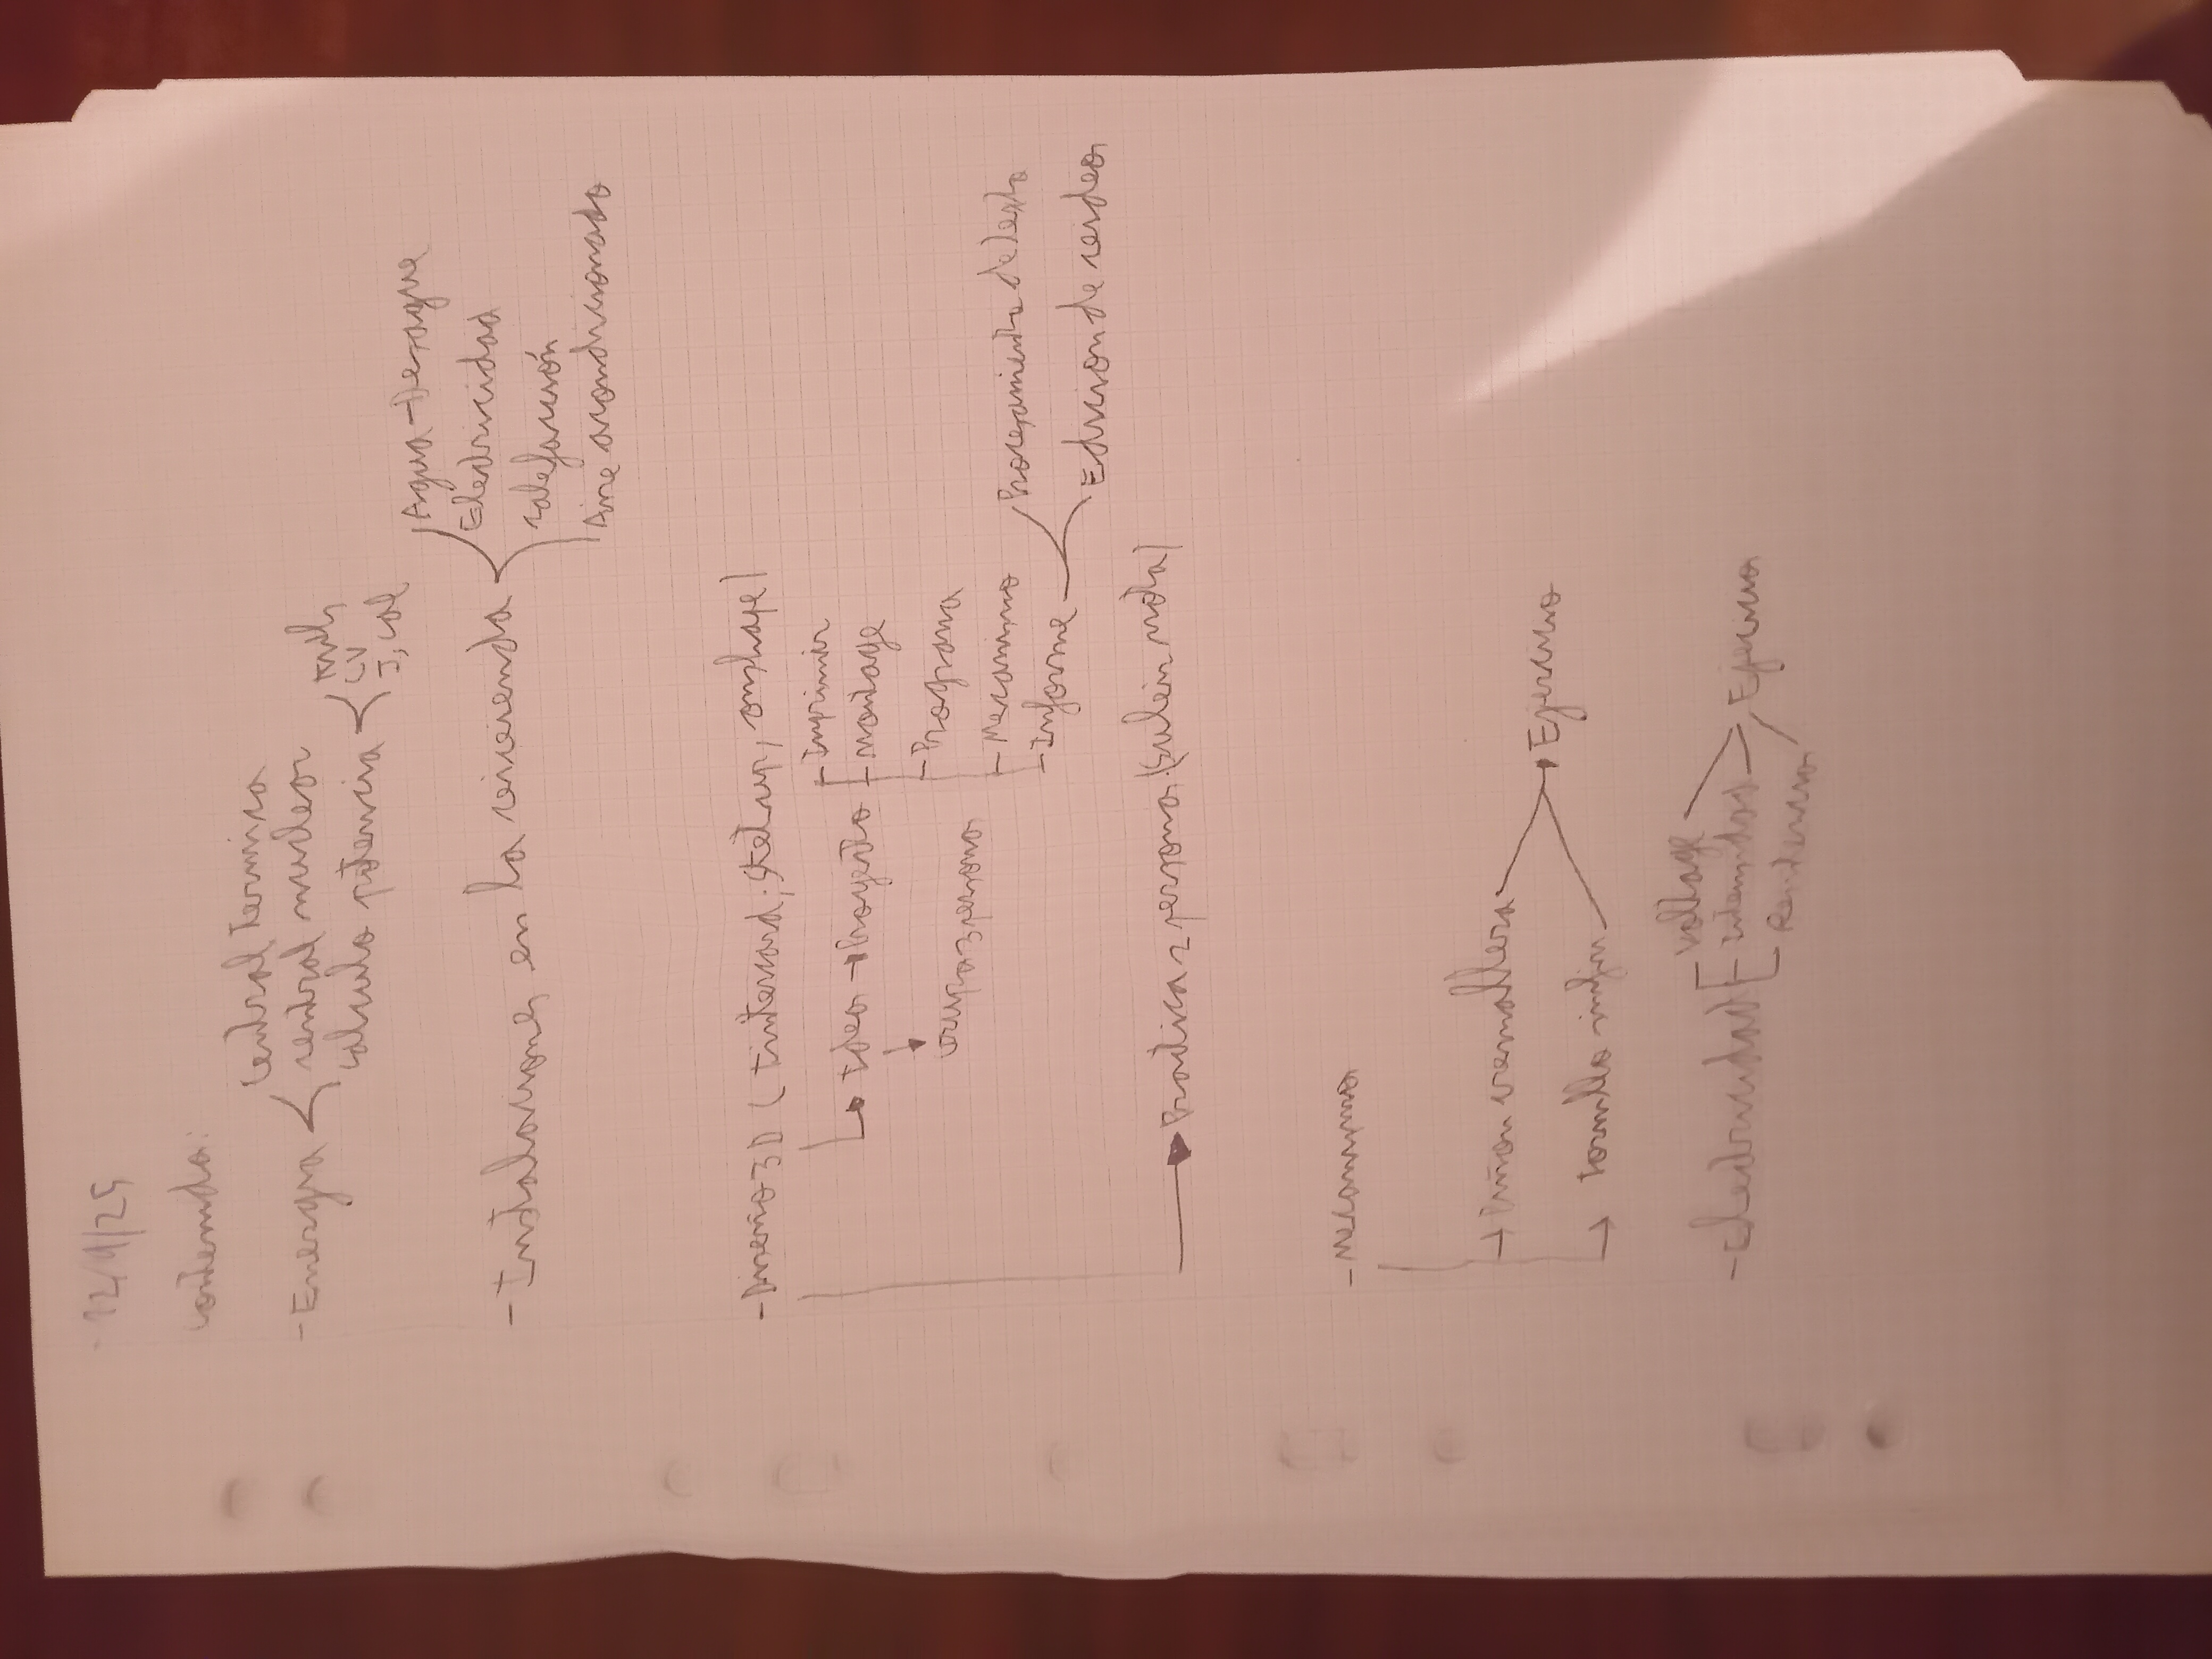 12/9/25
contenido:
central termica
-Energia
central nuclear
calculo potencia
Kwh,
CV
J, cal
-Instalaciones en la vivienda
Agua-Desague
Electricidad
calefacción
Aire acondicionado
-Diseño 3D (tintercard, Sketup, onshape)
Idea → Proyecto
Grupo 3 persona
-Inprimir
-Montage
-Programa
-Mecanismo
-Informe
Procesamiento de texto
Edicion de video
Practica 2 persona (Subeir nota)
-Mecanismo
→ Piñon cremallera
→ tornillo infin
→ Ejercicio
-Electricidad
-Voltage
-Intensidad
-Resistencia
Ejercicio